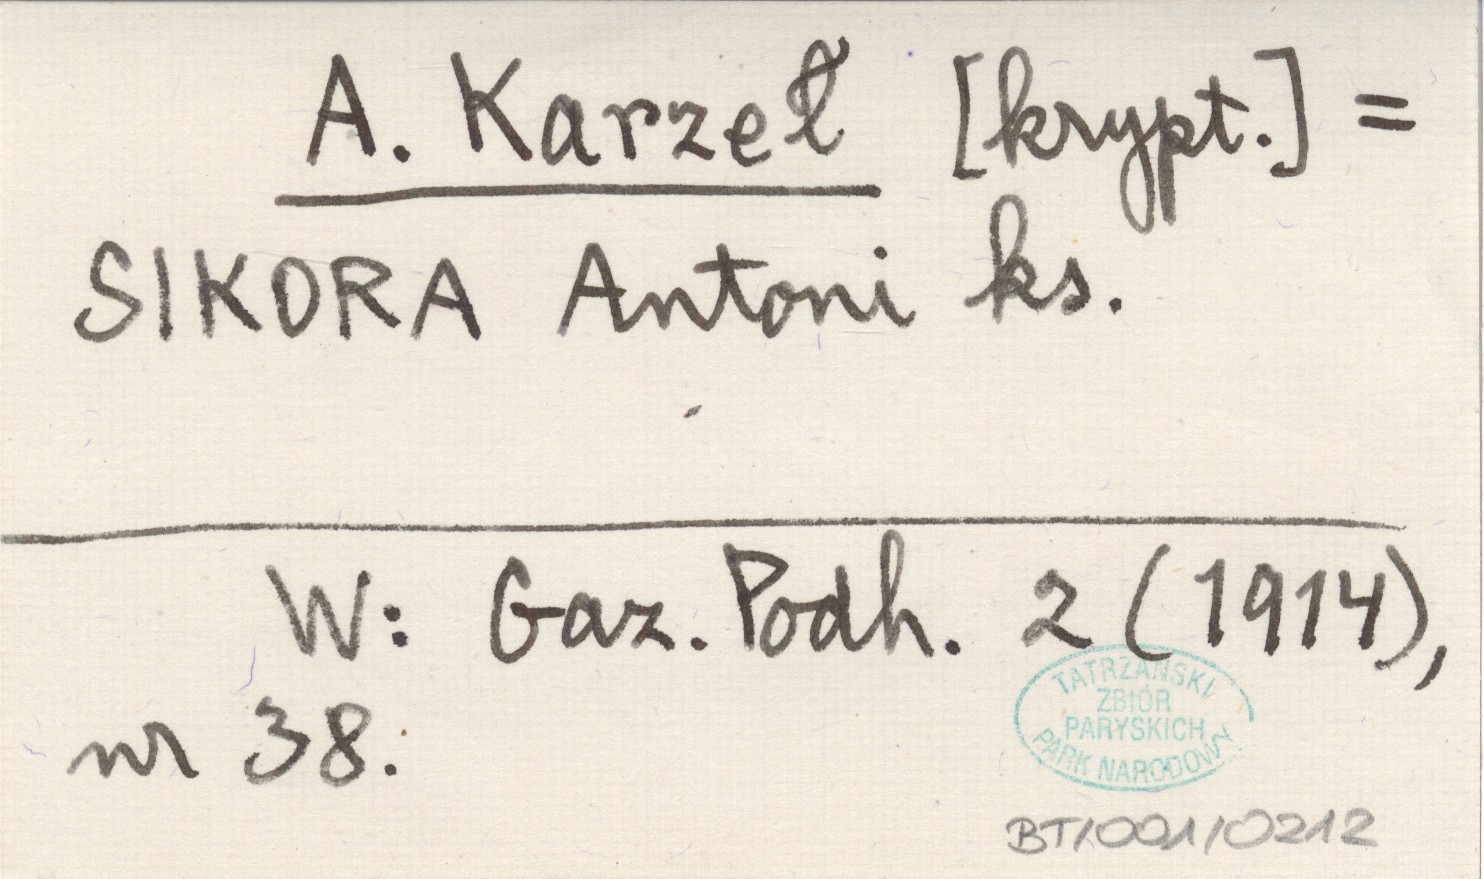 A. Karzeł [krypt.] =
SIKORA Antoni ks.
W: Gaz. Podh. 2 (1914),
nr 38.
TATRZAŃSKI
ZBIÓR
PARYSKICH
PARK NARODOWY
BT/001/0212